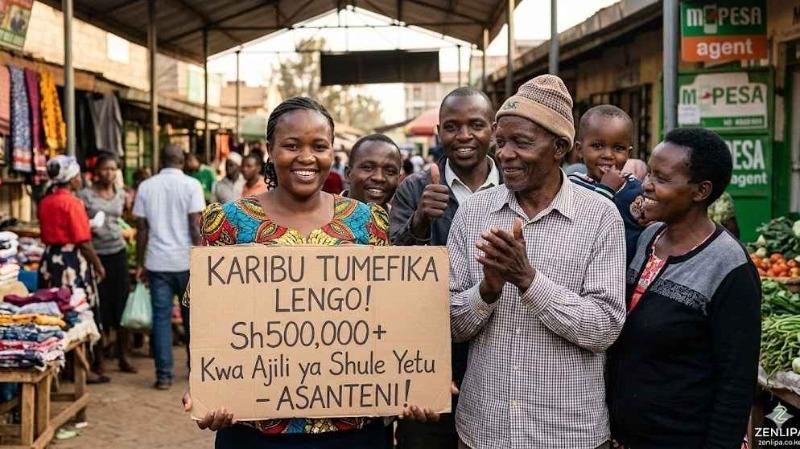 KARIBU TUMEFIKA
LENGO!
Sh500,000+
Kwa Ajili ya Shule Yetu
- ASANTENI!
M-PESA
agent
M-PESA
agent
ZENLIPA
zenlipa.co.ke